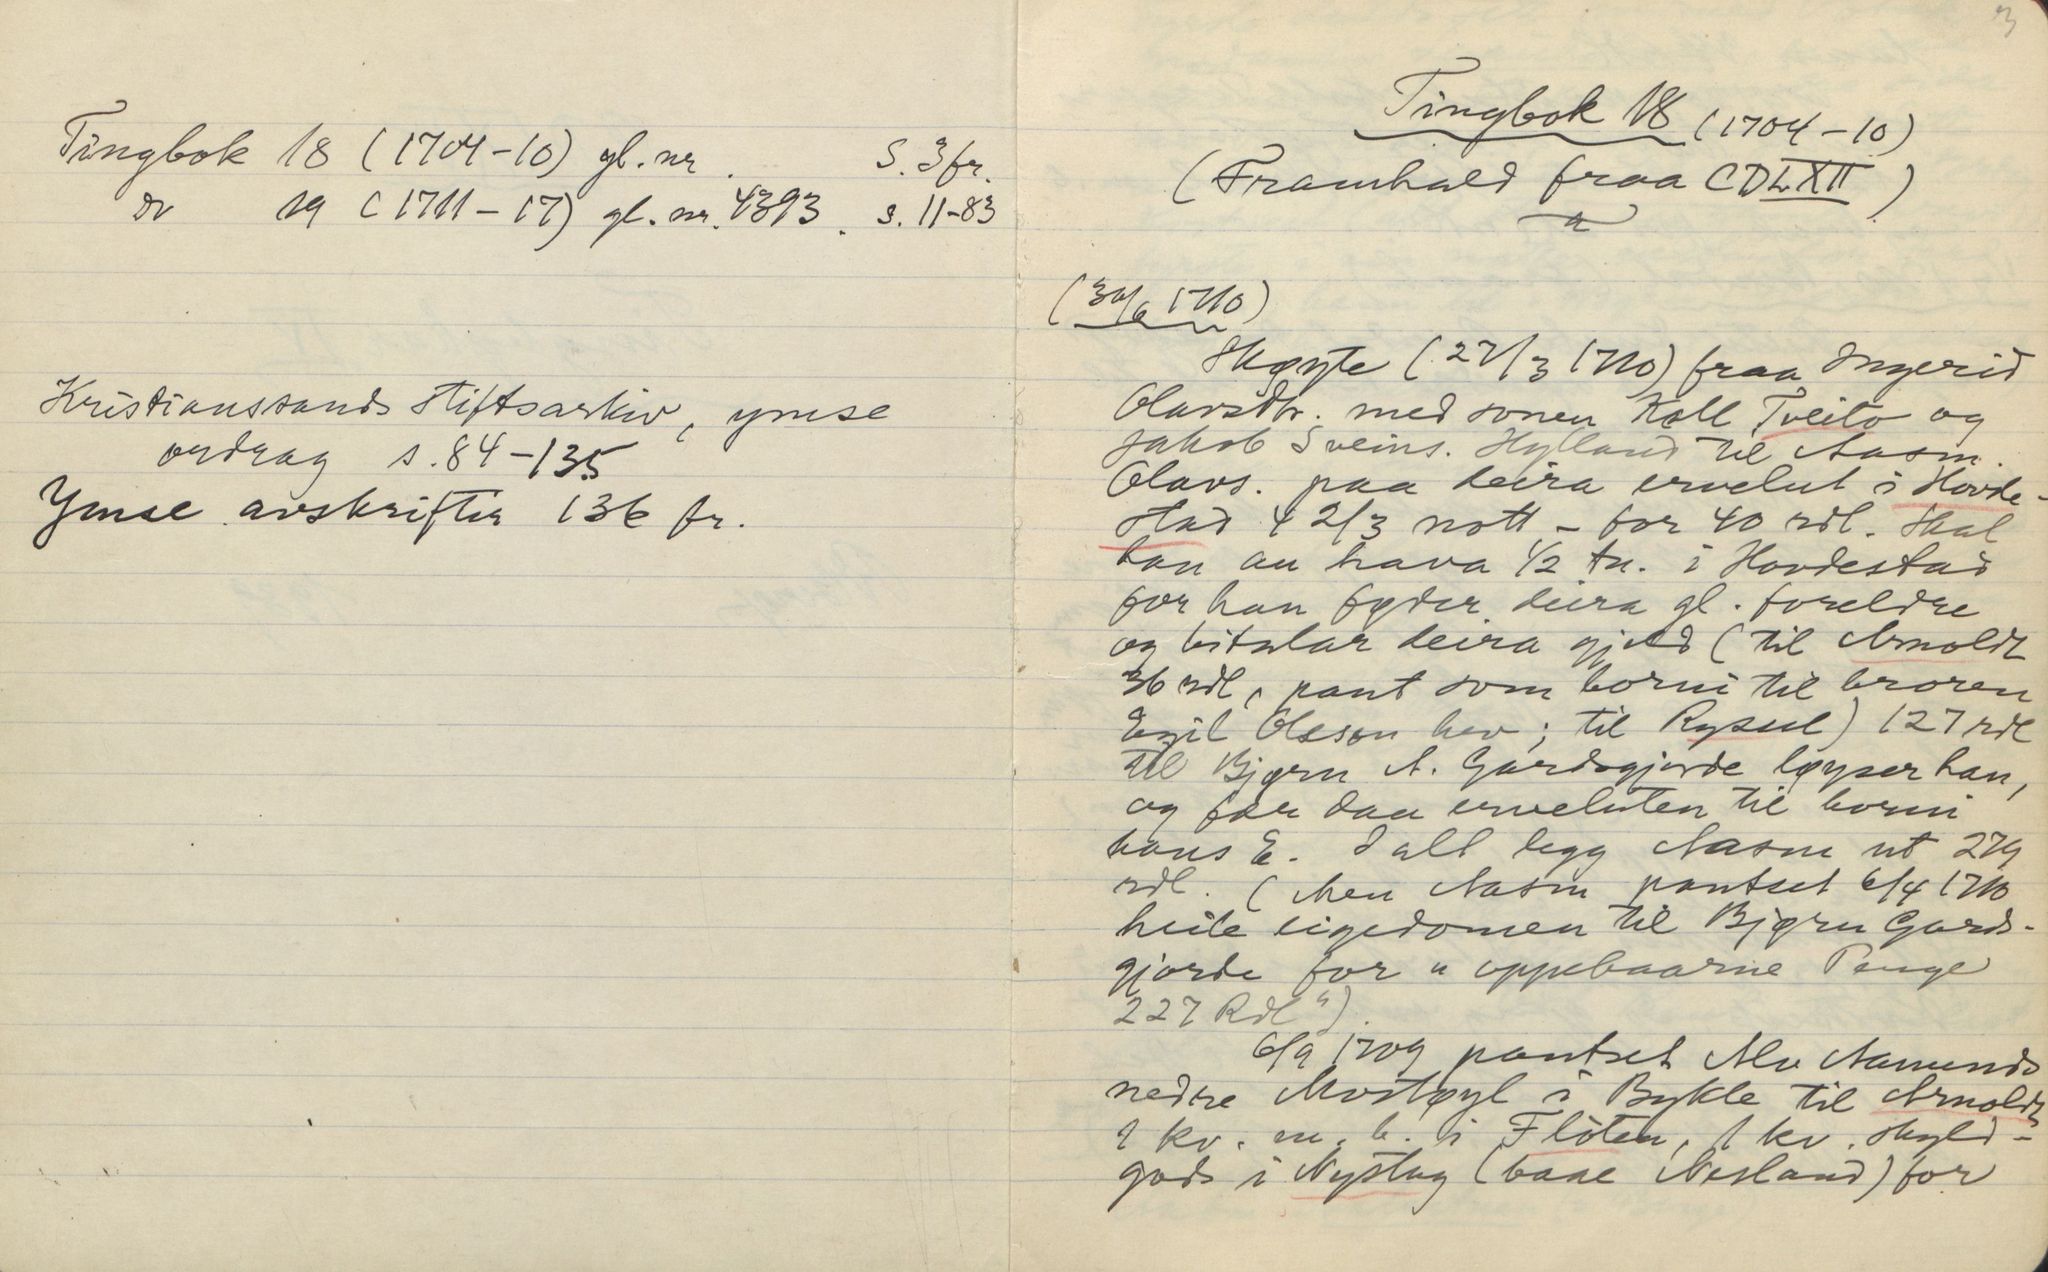 Tingbok 18 (1704-10) gl. nr. S. 3 fr.
do 19 (1711-17) gl. nr. 4393. s. 11-83
Kristianssands stiftsarkiv, ymse
ordrag s. 84-135
Ymse avskrifter 136 fr.
3
Tingbok 18 (1704-10)
(Framhald fraa CDLXII)
(30/6 1710)
Skøyte (27/3 1710) fraa Ingerid
Olavsdtr. med sonen Koll Tveito og
Jakob Sveins. Hylland til Aasm.
Olavs. paa deira ervelut i Hovde-
stad 4 2/3 nott - for 40 rdl. Skal
han au hava 1/2 tn. i Hovdestad
for han føder deira gl. foreldre
og bitalar deira gjeld (til Arnoldt
36 rdl, pant som borni til broren
Egil Olsson hev; til Rysul) 127 rdl
til Bjørn A. Gardsgjorde løyser han,
og fær daa erveluten til borni
hans E. I alt legg Aasm ut 279
rdl. (Men Aasm pantset 6/4 1710
heile eigedomen til Bjørn Gards-
gjorde for "oppebaarne Penge
227 Rdl").
6/9 1709 pantset Alv Aamunds
nedre Mostøyl i Bykle til Arnoldt
1 kv. m. b. i Flóten, 1 kv. skyld-
gods i Nystug (baae Nesland) for